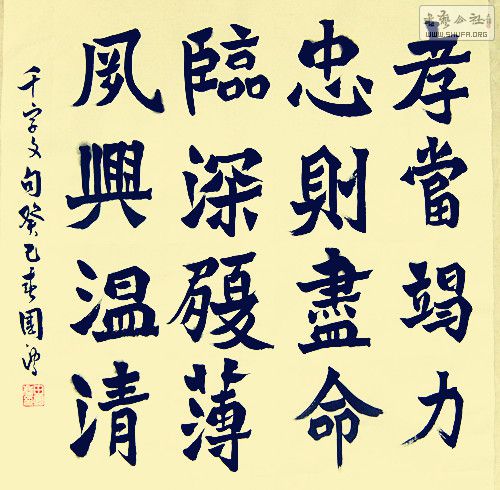 孝當竭力
忠則盡命
臨深履薄
夙興温清
千字文句癸巳春
书艺公社
WWW.SHUFA.ORG